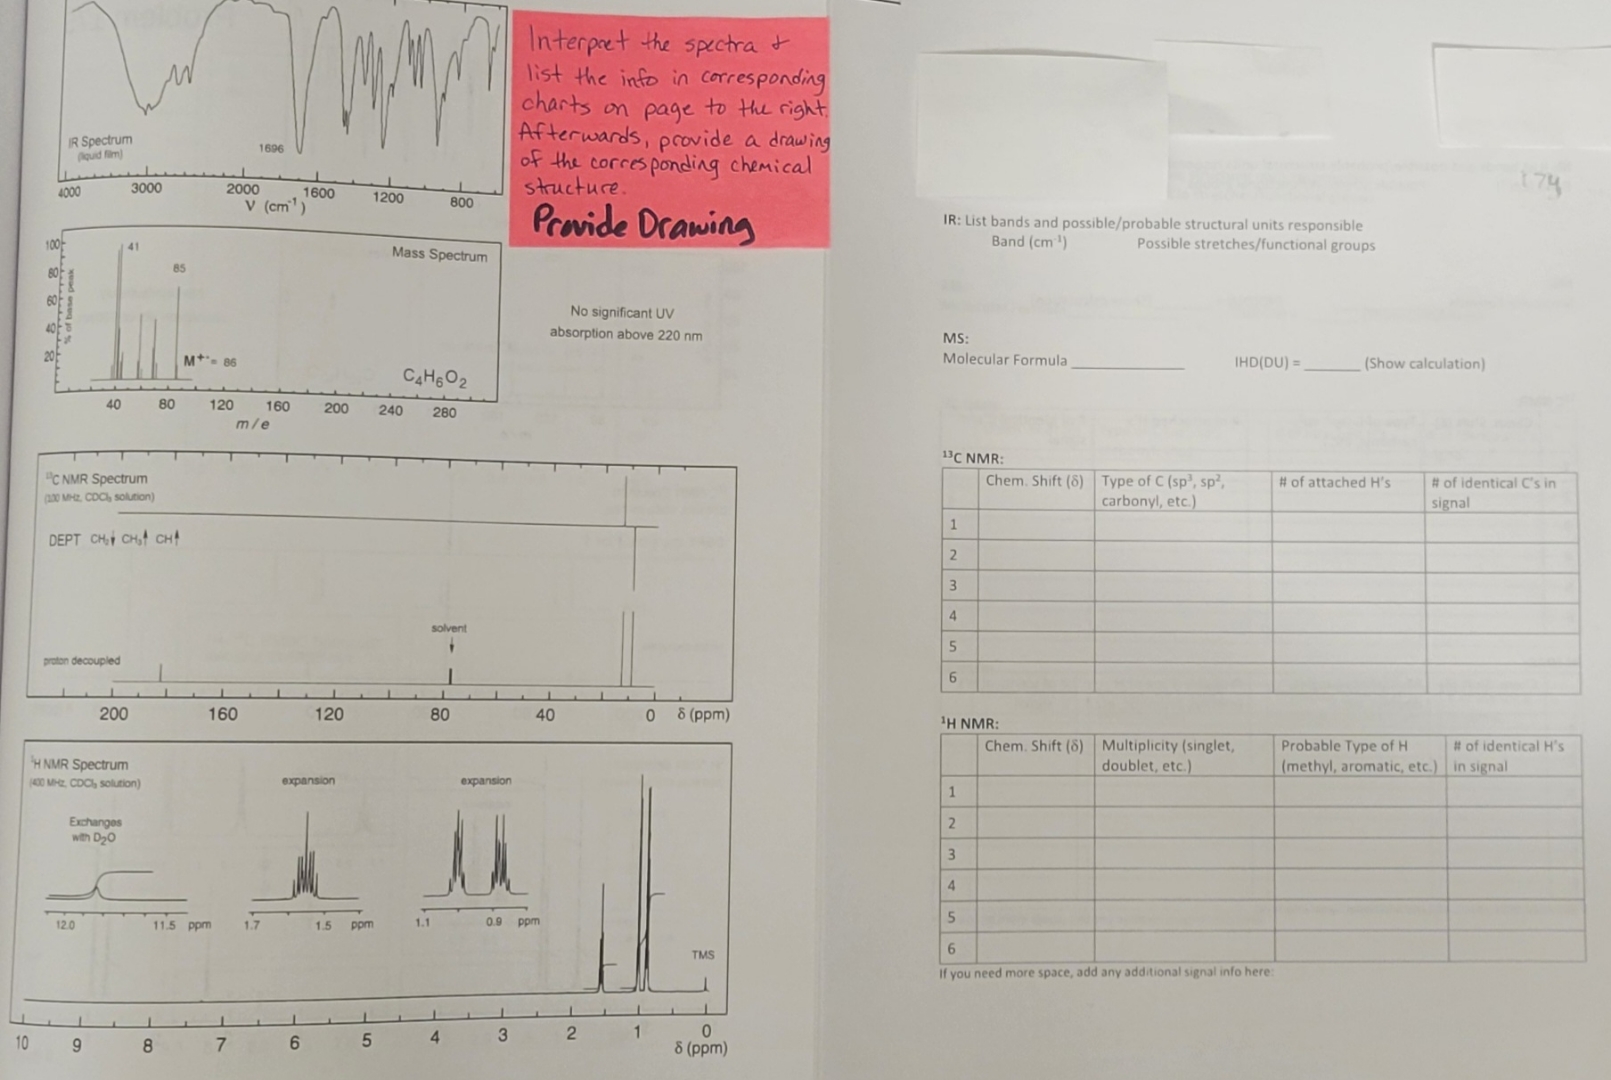 IR Spectrum
(liquid film)
1696
4000 3000 2000 1600 1200 800
V (cm⁻¹)
Interpret the spectra &
list the info in corresponding
charts on page to the right.
Afterwards, provide a drawing
of the corresponding chemical
structure.
Provide Drawing
Mass Spectrum
100
80
60
40
20
% of base peak
41
85
M⁺·= 86
C₄H₆O₂
40 80 120 160 200 240 280
m/e
No significant UV
absorption above 220 nm
¹³C NMR Spectrum
(100 MHz, CDCl₃ solution)
DEPT CH₂↓ CH₃↑ CH↑
solvent
proton decoupled
200 160 120 80 40 0 δ (ppm)
¹H NMR Spectrum
(400 MHz, CDCl₃ solution)
Exchanges
with D₂O
expansion
expansion
12.0 11.5 ppm
1.7 1.5 ppm
1.1 0.9 ppm
TMS
10 9 8 7 6 5 4 3 2 1 0
δ (ppm)
IR: List bands and possible/probable structural units responsible
Band (cm⁻¹) Possible stretches/functional groups
MS:
Molecular Formula ____________ IHD(DU) = ______ (Show calculation)
¹³C NMR:
Chem. Shift (δ) Type of C (sp³, sp², carbonyl, etc.) # of attached H's # of identical C's in signal
1
2
3
4
5
6
¹H NMR:
Chem. Shift (δ) Multiplicity (singlet, doublet, etc.) Probable Type of H (methyl, aromatic, etc.) # of identical H's in signal
1
2
3
4
5
6
If you need more space, add any additional signal info here: